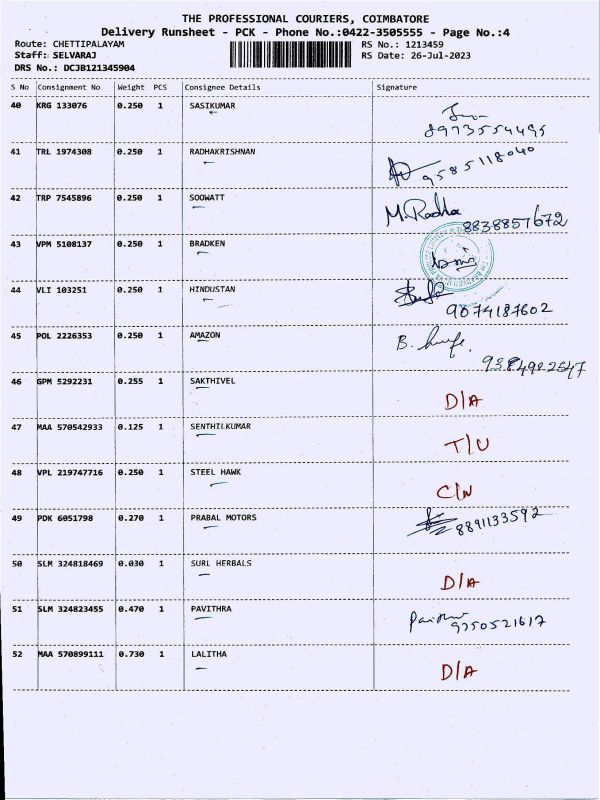 THE PROFESSIONAL COURIERS, COIMBATORE
Delivery Runsheet - PCK - Phone No.:0422-3505555 - Page No.:4
Route: CHETTIPALAYAM RS No.: 1213459
Staff: SELVARAJ RS Date: 26-Jul-2023
DRS No.: DCJB121345904
S No Consignment No Weight PCS Consignee Details Signature
40 KRG 133076 0.250 1 SASIKUMAR
8973554495
41 TRL 1974308 0.250 1 RADHAKRISHNAN
9585118040
42 TRP 7545896 0.250 1 SOOWATT M.Radha
8838857672
43 VPM 5108137 0.250 1 BRADKEN
44 VLI 103251 0.250 1 HINDUSTAN
9074187602
45 POL 2226353 0.250 1 AMAZON B.
9384992647
46 GPM 5292231 0.255 1 SAKTHIVEL
D/A
47 MAA 570542933 0.125 1 SENTHILKUMAR
T/U
48 VPL 219747716 0.250 1 STEEL HAWK
C/N
49 PDK 6051798 0.270 1 PRABAL MOTORS
8891133592
50 SLM 324818469 0.030 1 SURL HERBALS
D/A
51 SLM 324823455 0.470 1 PAVITHRA
9750521617
52 MAA 570899111 0.730 1 LALITHA
D/A